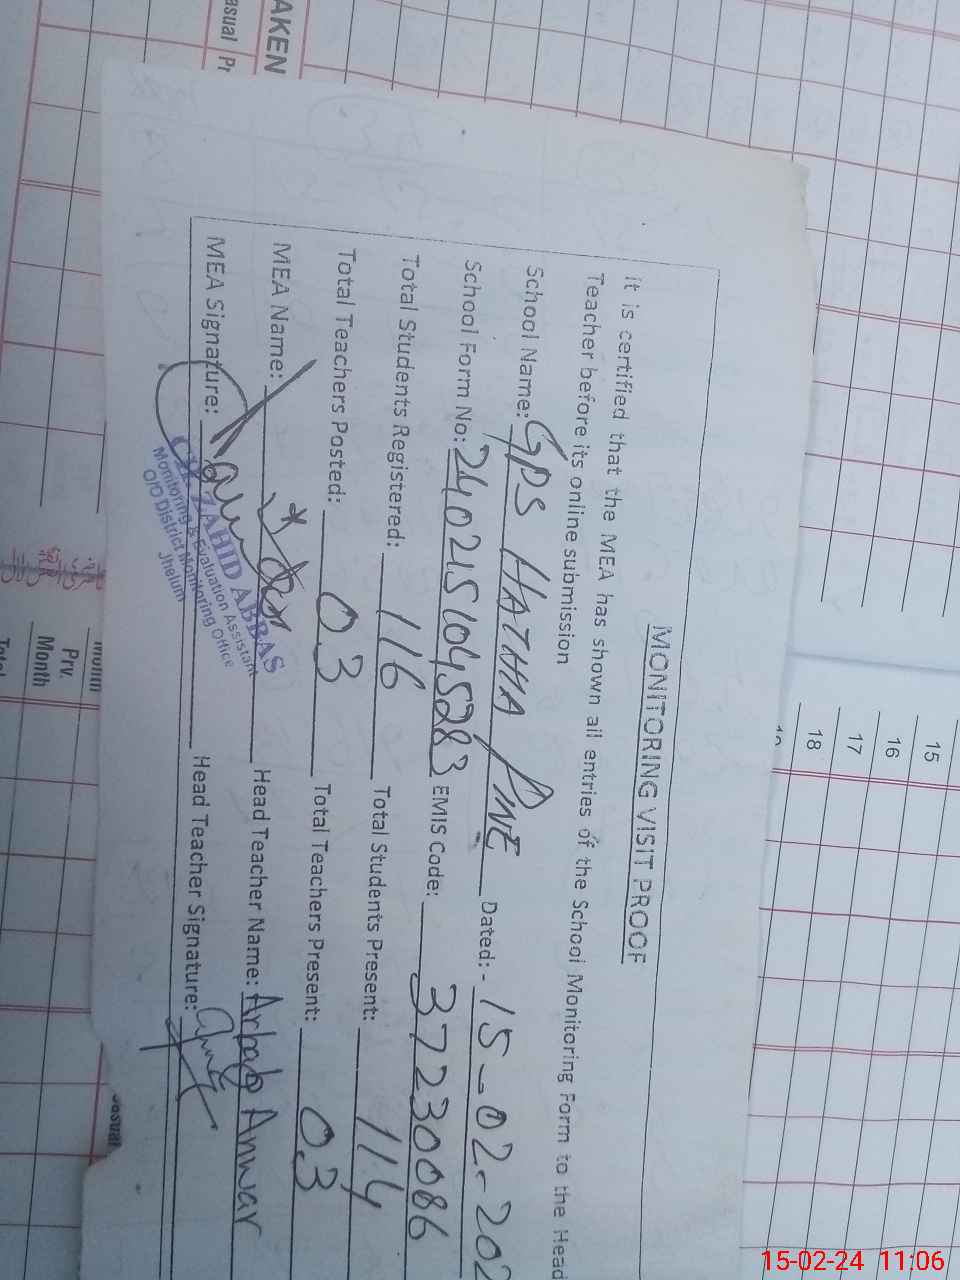 MONITORING VISIT PROOF
it is certified that the MEA has shown all entries of the School Monitoring Form to the Head
Teacher before its online submission
School Name: GPS HATHHA Dated:- 15-02-202
School Form No: 2402151045283 EMIS Code: 37230086
Total Students Registered: 116 Total Students Present: 114
Total Teachers Posted: 03 Total Teachers Present: 03
MEA Name: Head Teacher Name: Arbab Anwar
MEA Signature: Head Teacher Signature:
ZAHID ABBAS
Monitoring & Evaluation Assistant
O/O District Monitoring Office
Jhelum
AKEN
asual Pr
15
16
17
18
Prv.
Month
15-02-24 11:06